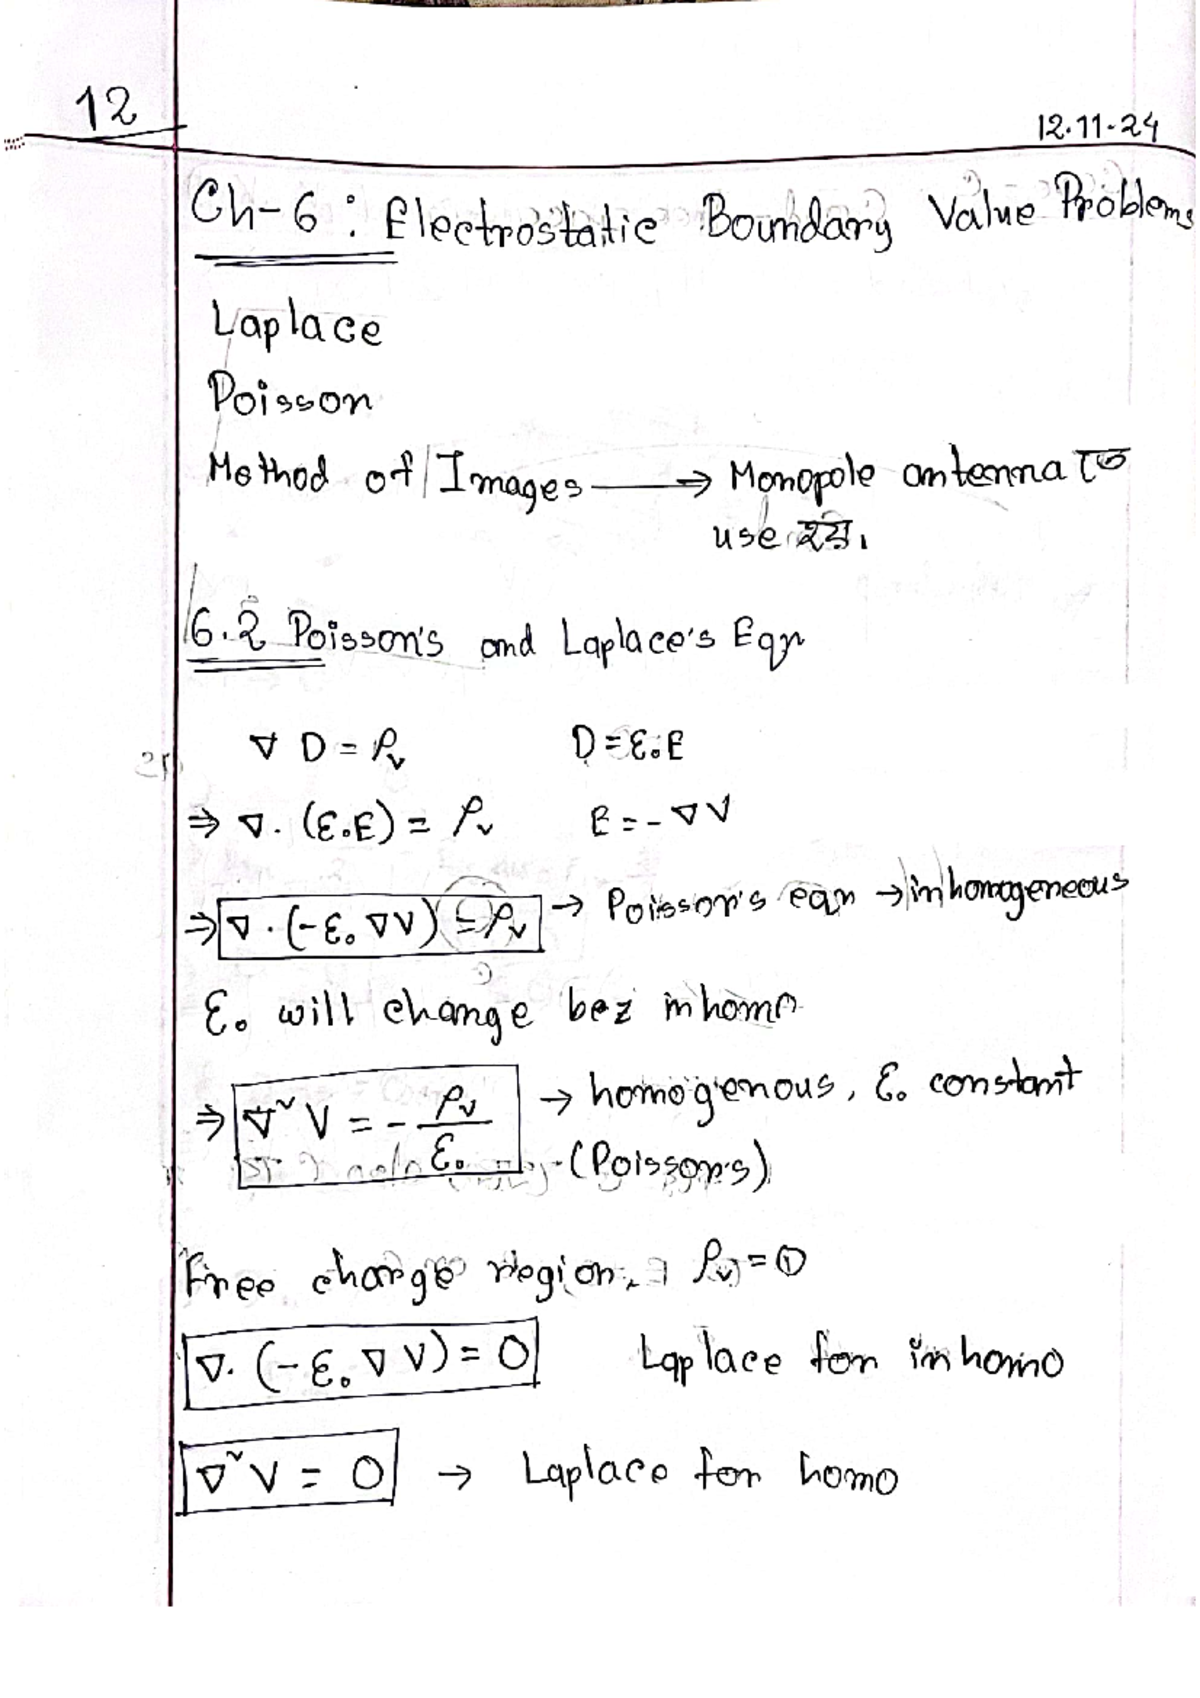 12
12.11-24
Ch-6: Electrostatic Boundary Value Problems
Laplace
Poisson
Method of Images → Monopole antenna তে
use হয়।
6.2 Poisson's and Laplace's Eqn
∇ D = ρᵥ D = ε₀E
⇒ ∇. (ε₀E) = ρᵥ E = - ∇V
⇒ ∇. (-ε₀ ∇V) = ρᵥ → Poisson's eqn → inhomogeneous
ε₀ will change bez inhomo
⇒ ∇˜V = - ρᵥ/ε₀ → homogenous, ε₀ constant
(Poisson's)
Free charge region, ρᵥ = 0
∇. (-ε₀ ∇ V) = 0 Laplace for inhomo
∇˜V = 0 → Laplace for homo